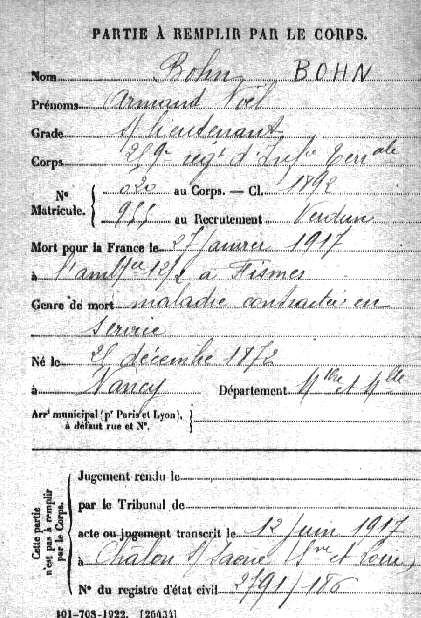 PARTIE À REMPLIR PAR LE CORPS.
Nom Bohn BOHN
Prénoms Armand Noël
Grade S/lieutenant
Corps 259e régt d'Infie Terrale
No Matricule. 020 au Corps. — Cl. 1892
955 au Recrutement Verdun
Mort pour la France le 27 janvier 1917
à l'amb 12/2 à Fismes
Genre de mort maladie contractée en
service
Né le 25 décembre 1872
à Nancy Département Mthe et Mlle
Arrt municipal (pr Paris et Lyon),
à défaut rue et No.
Cette partie
n'est pas à remplir
par le Corps.
Jugement rendu le
par le Tribunal de
acte ou jugement transcrit le 12 juin 1917
à Châlon s/ Saone (Sne et Loire)
No du registre d'état civil 2791/186
101-708-1922. [26434]